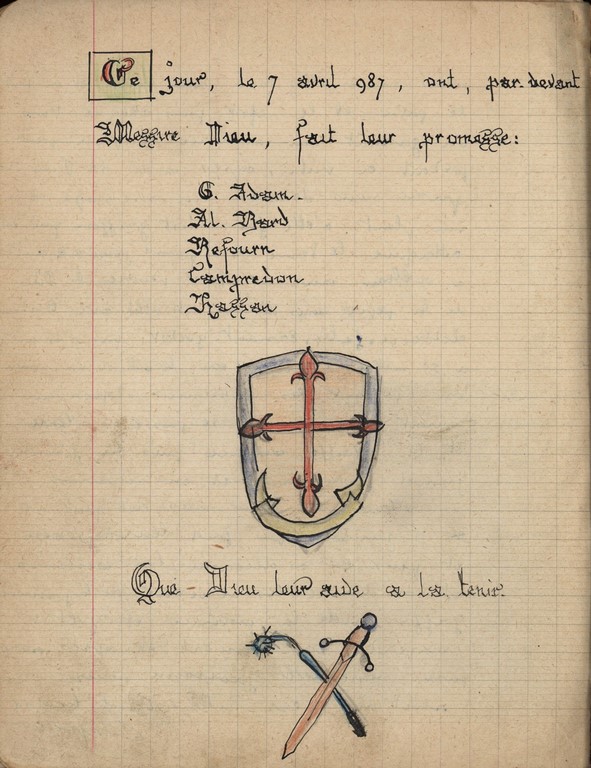 Ce jour, le 7 avril 987, ont, par-devant
Messire Dieu, fait leur promesse:
G. Adam.
Al. Bard
Refourn
Campredon
Hassan
Que Dieu leur aide a la tenir.